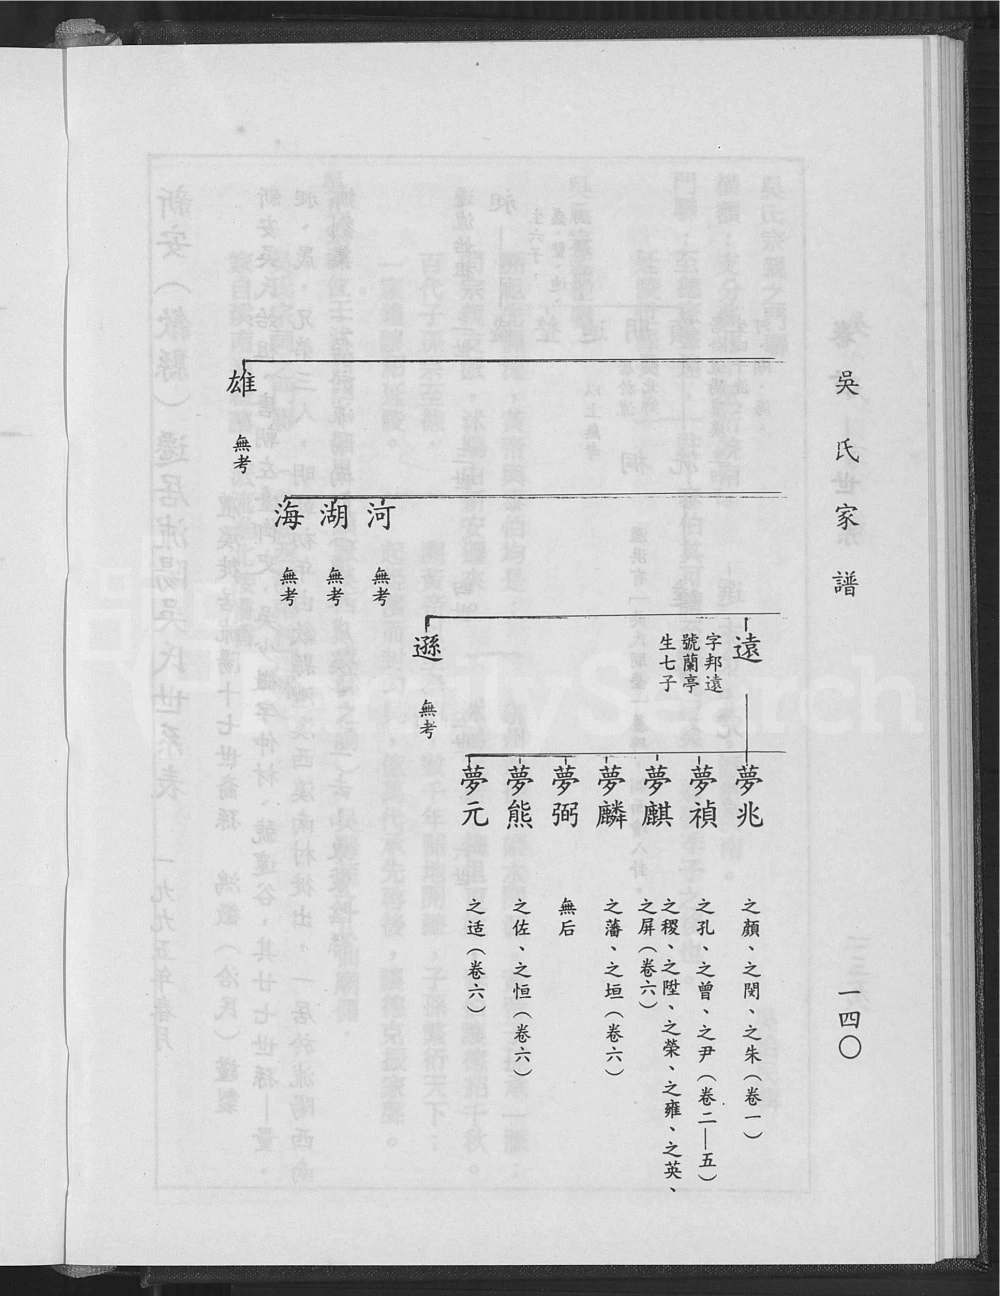 吳氏家譜
一四〇
遠
字邦遠
號蘭亭
生七子
夢兆
之顏、之閔、之朱(卷一)
夢禎
之孔、之曾、之尹(卷二—五)
夢麒
之稷、之陞、之榮、之雍、之英、
之屏(卷六)
夢麟
之藩、之垣(卷六)
夢弼
無后
夢熊
之佐、之恒(卷六)
夢元
之适(卷六)
遜
無考
河
無考
湖
無考
海
無考
雄
無考
FamilySearch